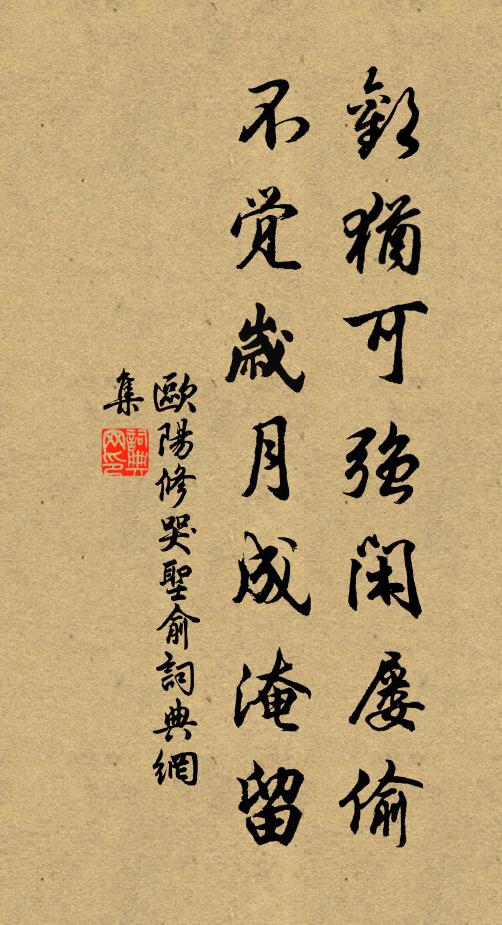 歡猶可强閑屢偷
不覺歲月成淹留
歐陽修哭聖俞詞典網
集
詞典網印